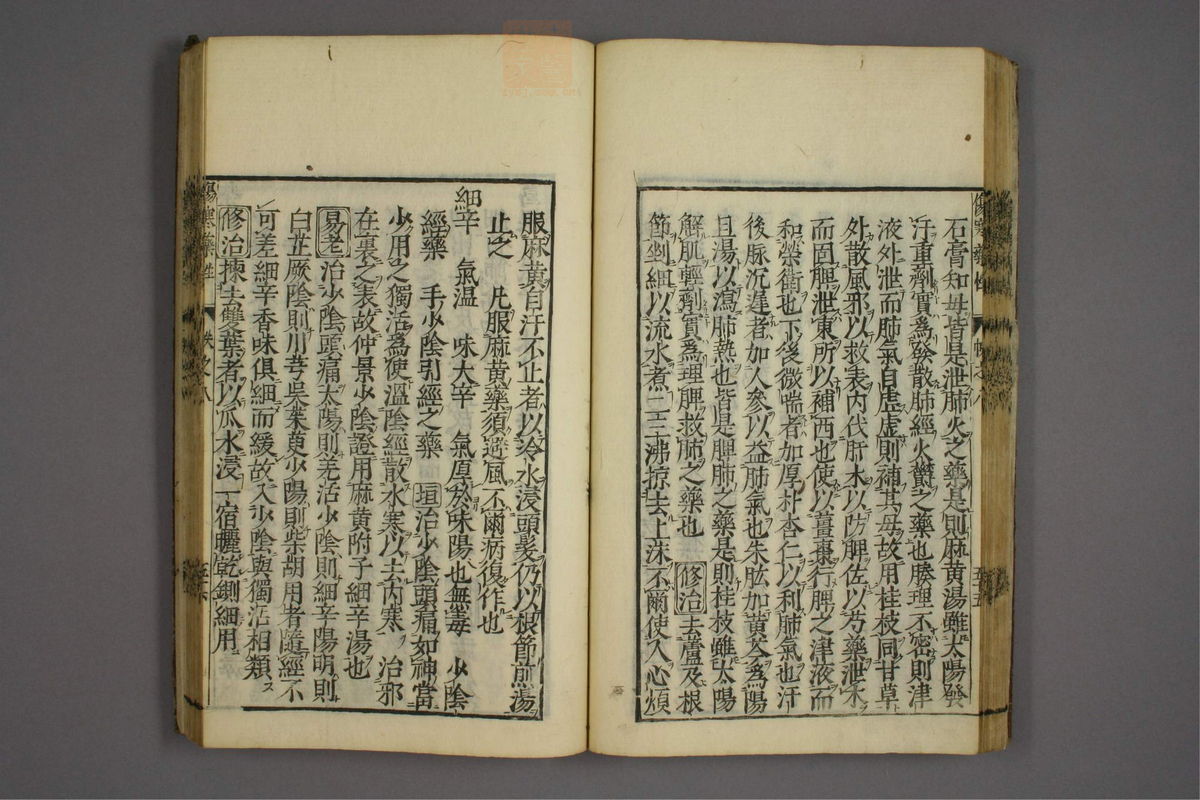 石膏知母皆是泄肺火之藥是則麻黄湯雖太陽發
汗重劑實爲發散肺經火欝之藥也腠理不密則津
液外泄而肺氣自虚虚則補其母故用桂枝同甘草
外散風邪以救表内伐肝木以防脾佐以芍藥泄木
而固脾泄東所以補西也使以薑棗行脾之津液而
和榮衛也下後微喘者加厚朴杏仁以利肺氣也汗
後脉沉遲者加人參以益肺氣也朱肱加黄芩爲陽
旦湯以瀉肺熱也皆是脾肺之藥是則桂枝雖太陽
解肌輕劑實爲理脾救肺之藥也 修治 去蘆及根
節剉細以流水煮二三沸掠去上沫不爾使人心煩
服麻黄自汗不止者以冷水浸頭髮仍以根節煎湯
止之 凡服麻黄藥須避風不爾病復作也
細辛 氣温 味大辛 氣厚於味陽也無毒 少陰
經藥 手少陰引經之藥 垣 治少陰頭痛如神當
少用之獨活爲使温陰經散水寒以去内寒 治邪
在裏之表故仲景少陰證用麻黄附子細辛湯也
易老 治少陰頭痛太陽則羌活少陰則細辛陽明則
白芷厥陰則川芎吳茱萸少陽則柴胡用者隨經不
可差細辛香味俱細而緩故入少陰與獨活相類
修治 揀去雙葉者以瓜水浸一宿曬乾剉細用